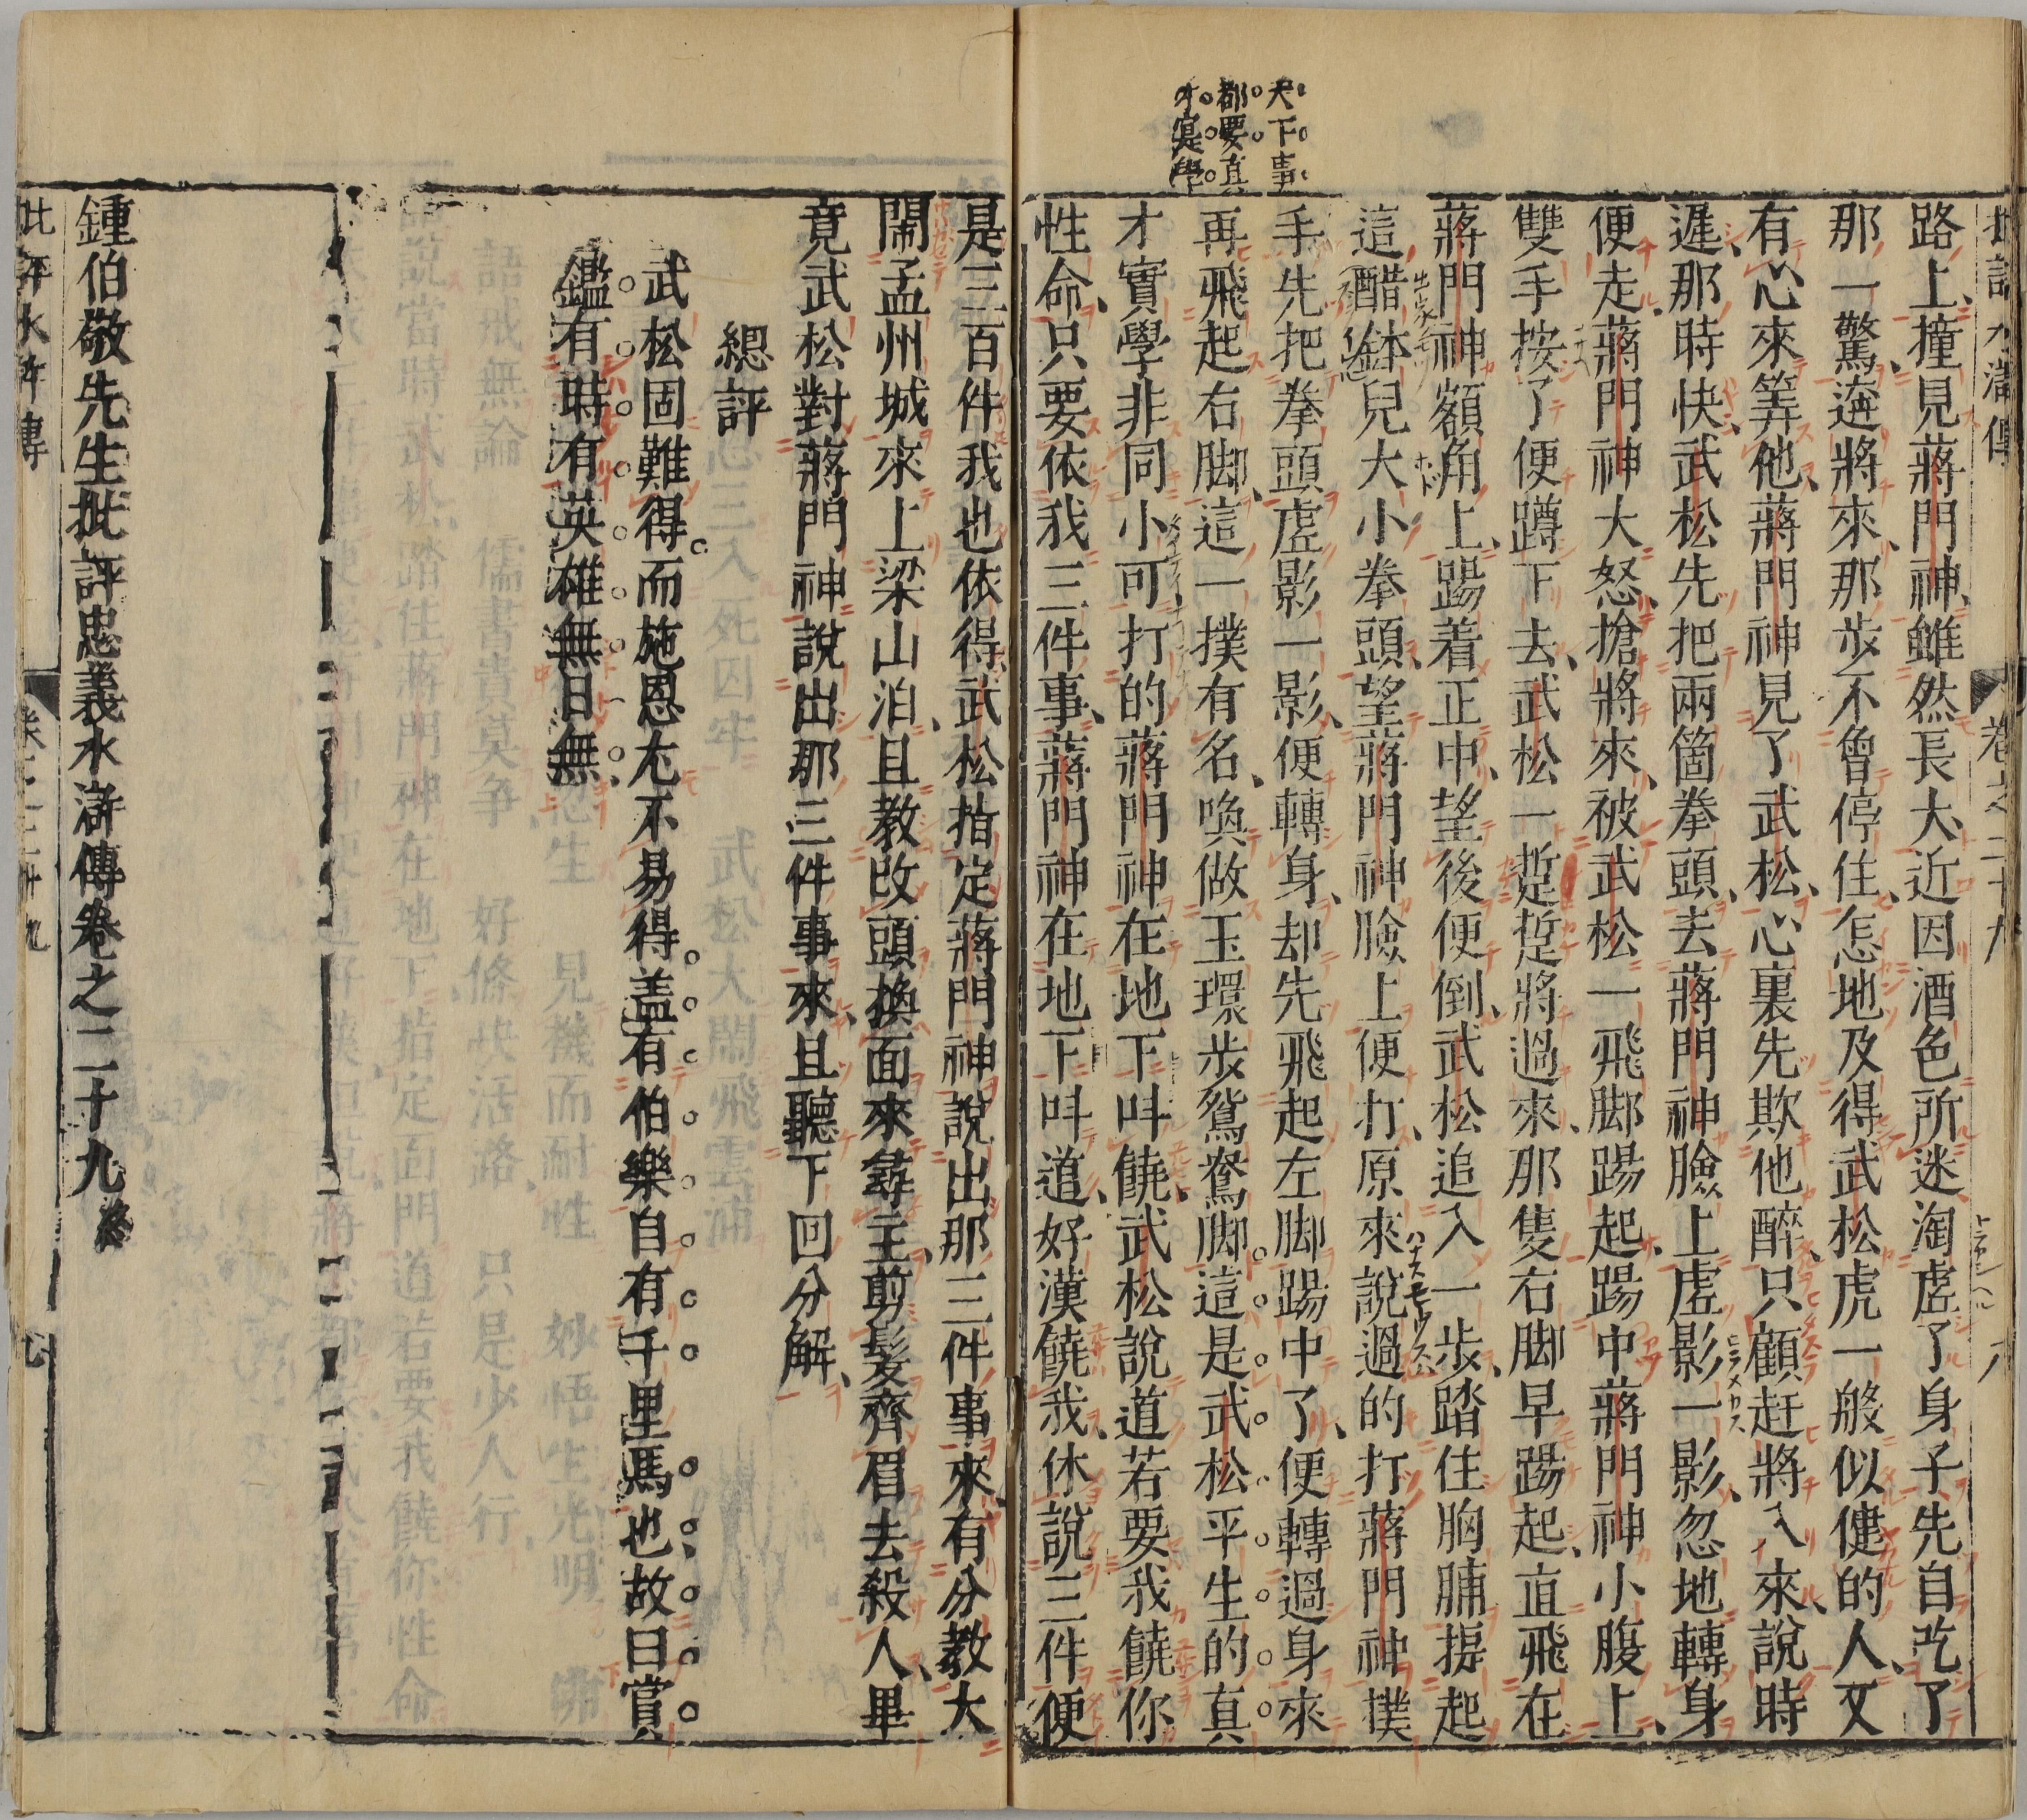 天下事
都要真
才寔學
路上撞見蔣門神雖然長大近因酒色所迷淘虛了身子先自吃了
那一驚遊將來那步不曾停住怎地及得武松虎一般似健的人又
有心來筭他蔣門神見了武松心裏先欺他醉只顧赶將入來說時
遲那時快武松先把兩箇拳頭去蔣門神臉上虛影一影忽地轉身
便走蔣門神大怒搶將來被武松一飛脚踢起踢中蔣門神小腹上
雙手按了便蹲下去武松一踅踅將過來那隻右脚早踢起直飛在
蔣門神額角上踢着正中望後便倒武松追入一步踏住胸脯提起
這醋鉢兒大小拳頭望蔣門神臉上便打原來說過的打蔣門神撲
手先把拳頭虛影一影便轉身却先飛起左脚踢中了便轉過身來
再飛起右脚這一撲有名喚做玉環步鴛鴦脚這是武松平生的真
才實學非同小可打的蔣門神在地下呌饒武松說道若要我饒你
性命只要依我三件事蔣門神在地下呌道好漢饒我休說三件便
是三百件我也依得武松指定蔣門神說出那三件事來有分教大
閙孟州城來上梁山泊且教改頭換面來尋主剪髮齊眉去殺人畢
竟武松對蔣門神說出那三件事來且聽下回分解
總評
武松固難得而施恩尢不易得盖有伯樂自有千里馬也故曰賞
鑑有時有英雄無日無
鍾伯敬先生批評忠義水滸傳卷之二十九終